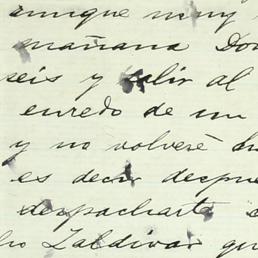 aunque muy
mañana Don
seis y salir al
enredo de un
y no volveré
es decir despué
despacharte
Zaldivar qu